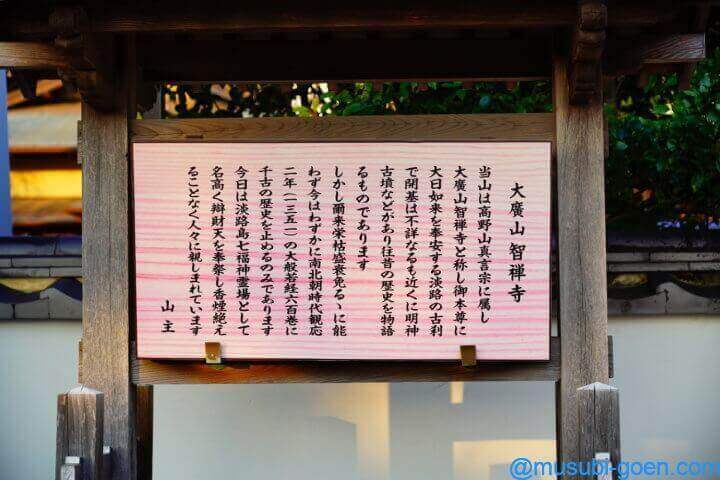 大廣山 智禅寺
当山は高野山真言宗に属し
大廣山智禅寺と称し御本尊に
大日如来を奉安する淡路の古刹
で開基は不詳なるも近くに明神
古墳などがあり往昔の歴史を物語
るものであります
しかし爾来栄枯盛衰免るゝに能
わず今はわずかに南北朝時代観応
二年（一三五一）の大般若経六百巻に
千古の歴史を止めるのみであります
今日は淡路島七福神霊場として
名高く辯財天を奉祭し香煙絶え
ることなく人々に親しまれています
山主
@musubi-goen.com